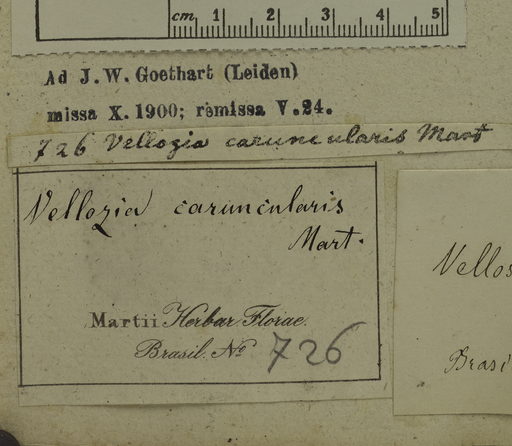 cm 1 2 3 4 5
Ad J. W. Goethart (Leiden)
missa X. 1900; remissa V. 24.
726 Vellozia caruncularis Mart
Vellozia caruncularis
Mart.
Martii Herbar. Florae
Brasil. No 726
Vellos
Brasi